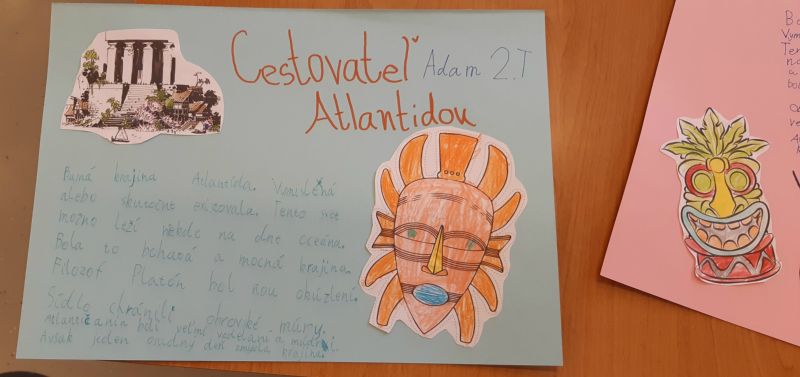 Cestovateľ Adam 2.T
Atlantidou
Bájná krajina Atlantída. Vymyslená
alebo skutočne existovala. Tento svet
možno leží niekde na dne oceána.
Bola to bohatá a mocná krajina.
Filozof Platón bol ňou obúzlení.
Sídlo chránili obrovské múry.
Atlantičania boli veľmi vzdelaní a múdri.
Avšak jeden osudný deň zmizla krajina.